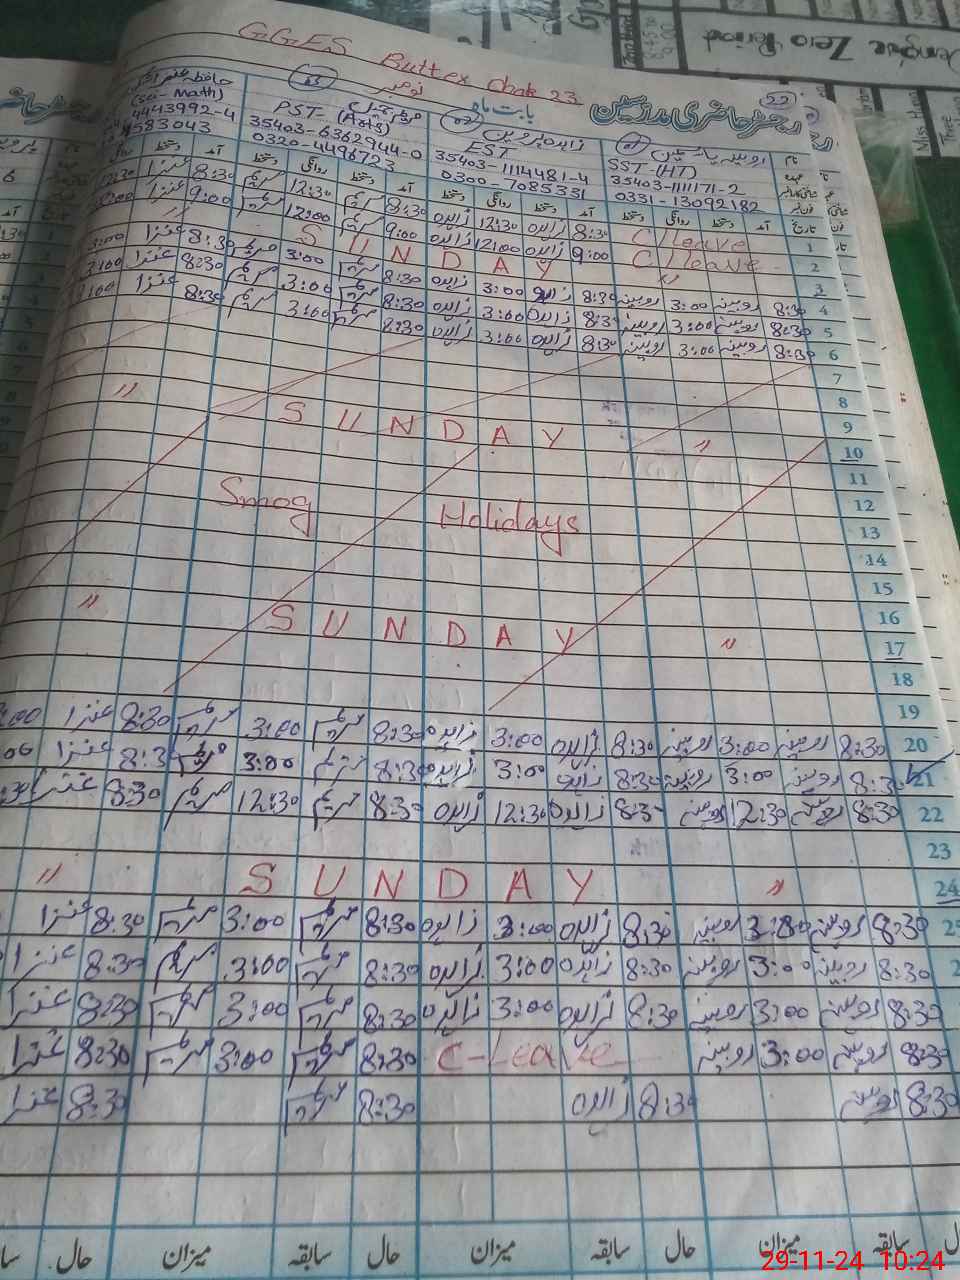 GGES Butter Chak 23
نومبر
رجسٹر حاضری مدرسین
بابت ماہ
22
روبینہ یاسمین
SST-(HT)
35403-111171-2
0331-13092182
زاہدہ پروین
EST
35403-1114481-4
0300-7085331
PST-(Arts)
35403-6362944-0
0320-4496723
(Sci-Math)
4443992-4
4583043
آمد دستخط روانگی دستخط
8:30 زاہدہ 12:30 زاہدہ 8:30 مریم 12:30 مریم 8:30 عذرا 12:30
C Leave 1
9:00 زاہدہ 12:00 زاہدہ 9:00 مریم 12:00 مریم 9:00 عذرا
C Leave 2
" S U N D A Y " 3
4 8:30 روبینہ 3:00 روبینہ 8:30 زاہدہ 3:00 زاہدہ 8:30 مریم 3:00 مریم 8:30 عذرا 3:00
5 8:30 روبینہ 3:00 روبینہ 8:30 زاہدہ 3:00 زاہدہ 8:30 مریم 3:00 مریم 8:30 عذرا 3:00
6 8:30 روبینہ 3:00 روبینہ 8:30 زاہدہ 3:00 زاہدہ 8:30 مریم 3:00 مریم 8:30 عذرا
7
8
9
" S U N D A Y " 10
11
Smog Holidays 12
13
14
15
16
" S U N D A Y " 17
18
19
20 8:30 روبینہ 3:00 روبینہ 8:30 زاہدہ 3:00 زاہدہ 8:30 مریم 3:00 مریم 8:30 عذرا
21 8:30 روبینہ 3:00 روبینہ 8:30 زاہدہ 3:00 زاہدہ 8:30 مریم 3:00 مریم 8:3 عذرا
22 8:30 روبینہ 12:30 روبینہ 8:30 زاہدہ 12:30 زاہدہ 8:30 مریم 12:30 مریم 8:30 عذرا
23
" S U N D A Y " 24
8:30 روبینہ 3:00 روبینہ 8:30 زاہدہ 3:00 زاہدہ 8:30 مریم 3:00 مریم 8:30 عذرا
8:30 روبینہ 3:00 روبینہ 8:30 زاہدہ 3:00 زاہدہ 8:30 مریم 3:00 مریم 8:30 عذرا
8:30 روبینہ 3:00 روبینہ 8:30 زاہدہ 3:00 زاہدہ 8:30 مریم 3:00 مریم 8:30 عذرا
8:30 روبینہ 3:00 روبینہ C-Leave 8:30 مریم 3:00 مریم 8:30 عذرا
8:30 روبینہ 8:30 زاہدہ 8:30 مریم 8:30 عذرا
سابقہ میزان حال سابقہ میزان حال سابقہ میزان حال
29-11-24 10:24
Zero Period